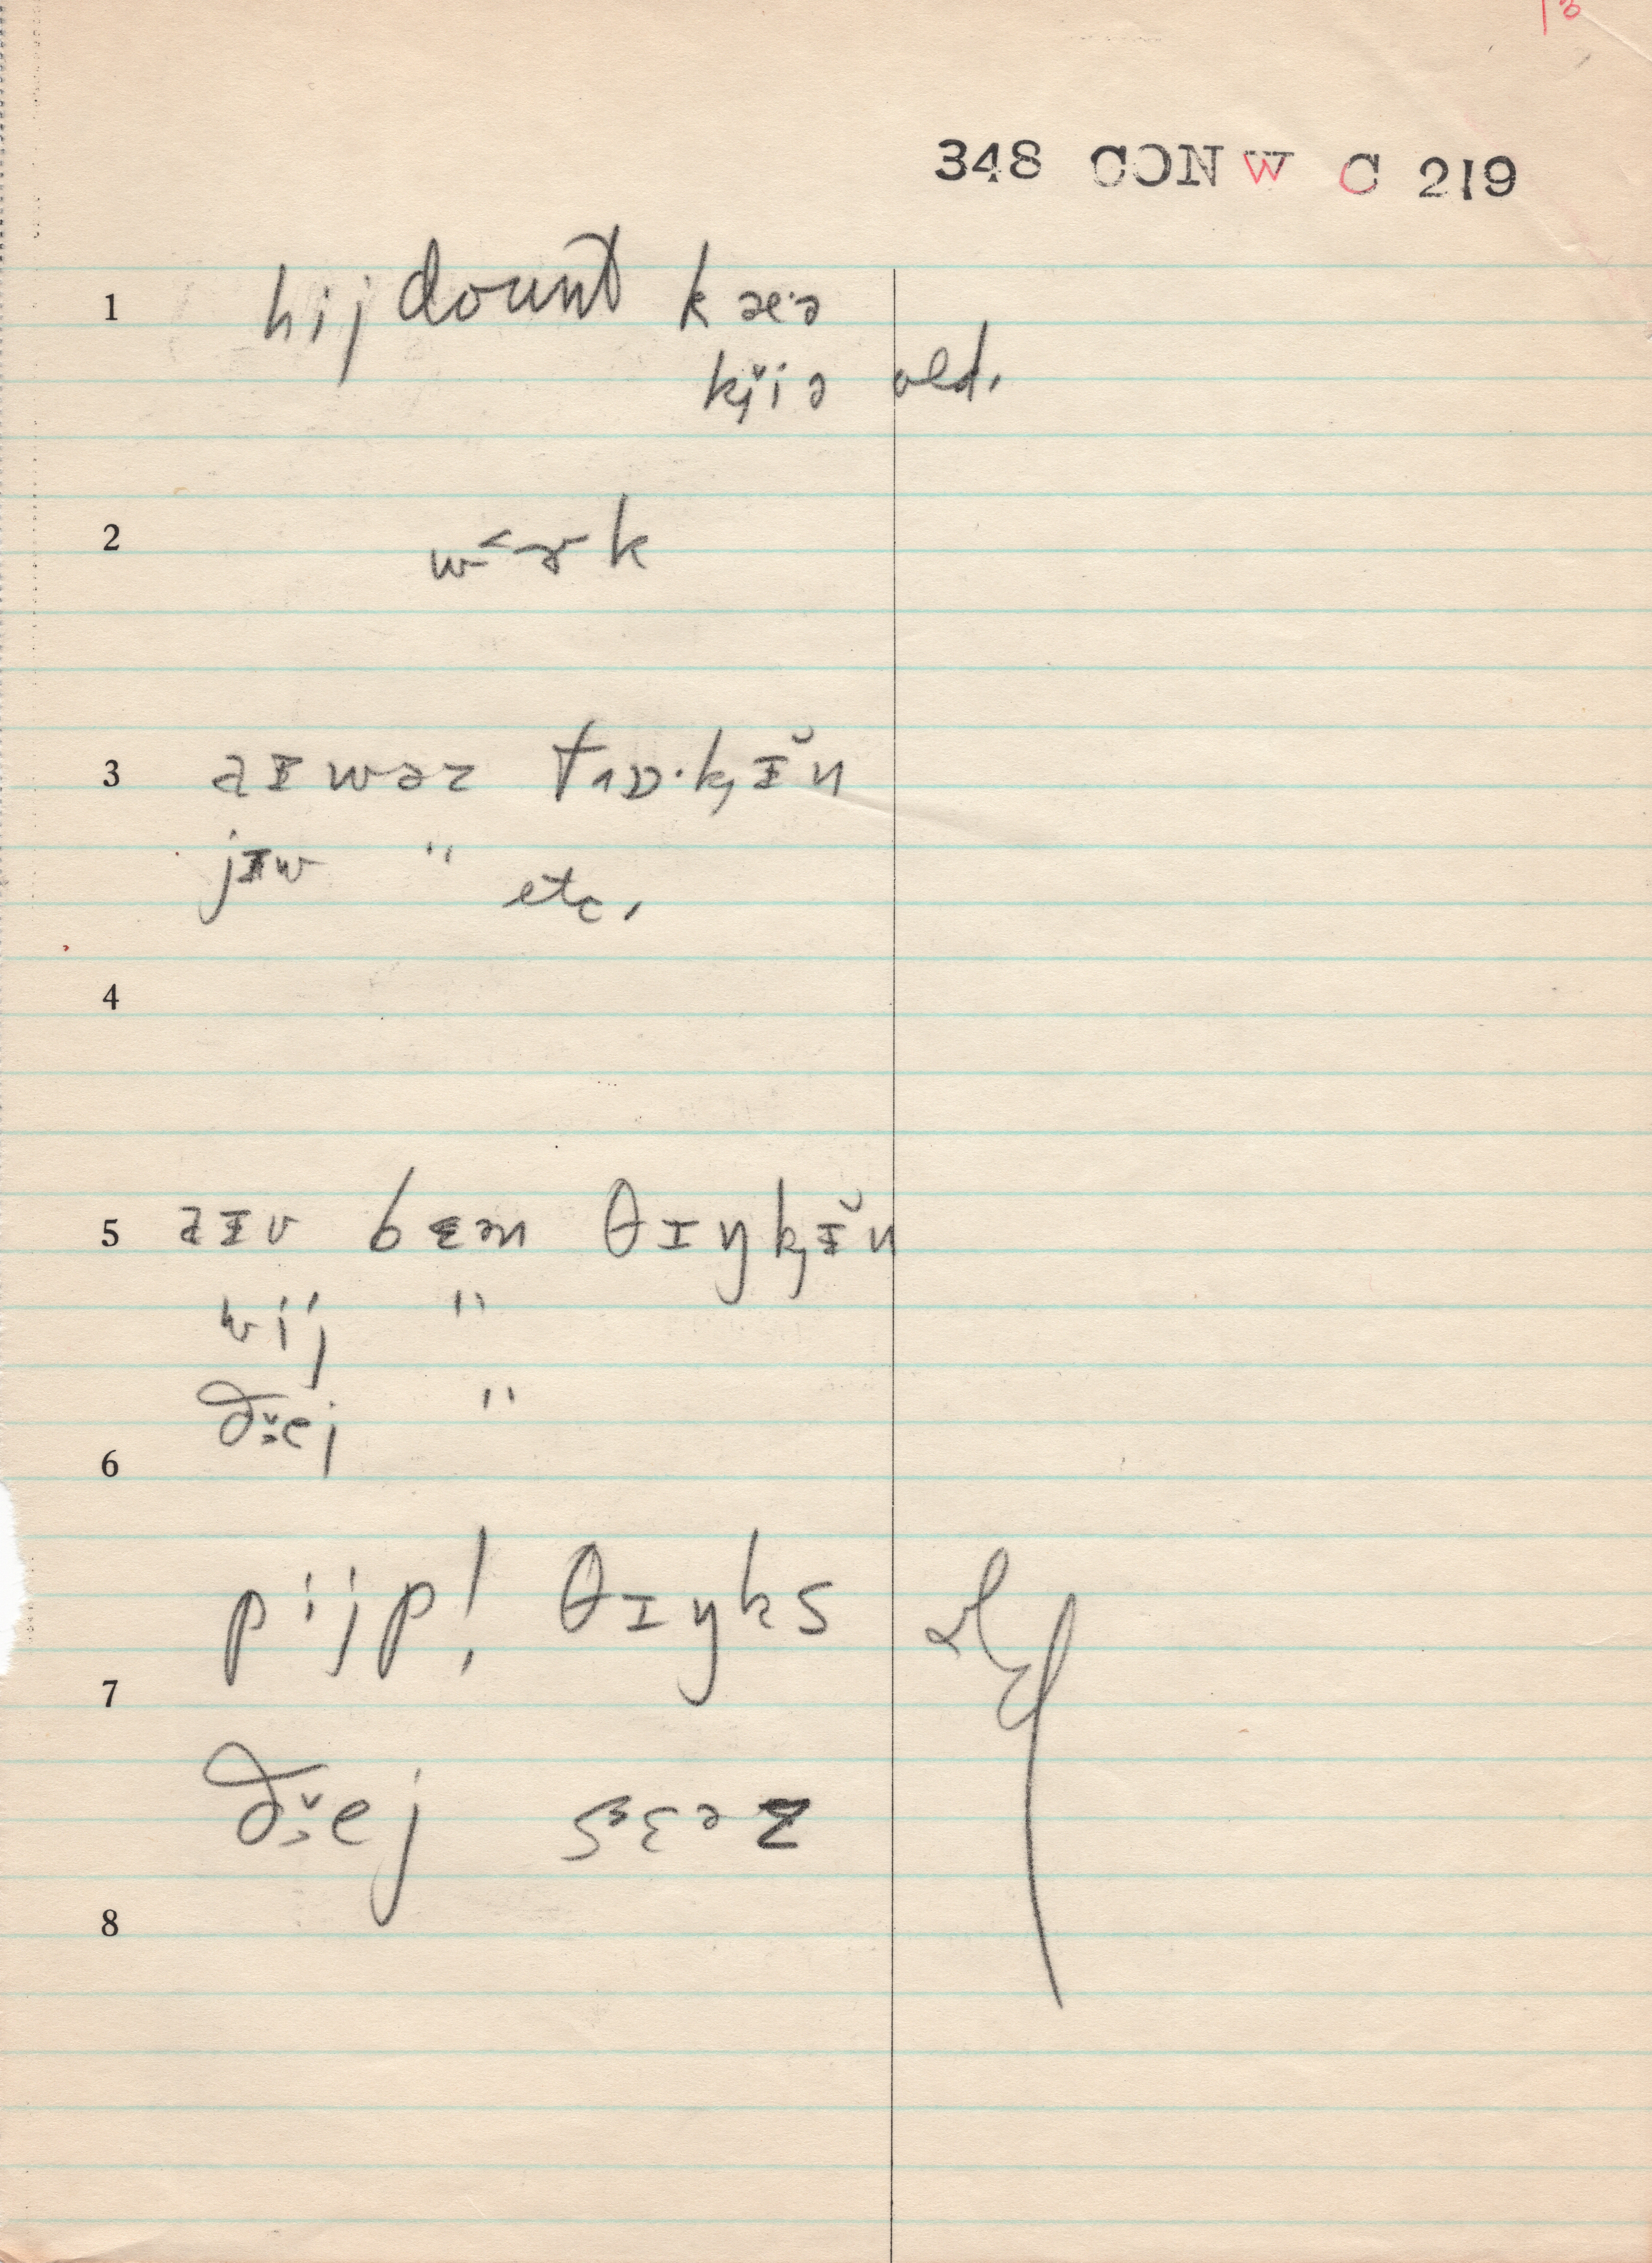 13
348 CON W C 219
1 hij dount kæ·ə
kj̆iə old.
2 w˂ɚk
3 aɪwəz tɒ·kɪ̆n
jɪw " etc.
4
5 aɪv bɛəm θɪŋkɪ̆n
wij "
ðɛ̌ej "
6
pijp! θɪŋks
7
ðɛ̌ej sɛəz
8